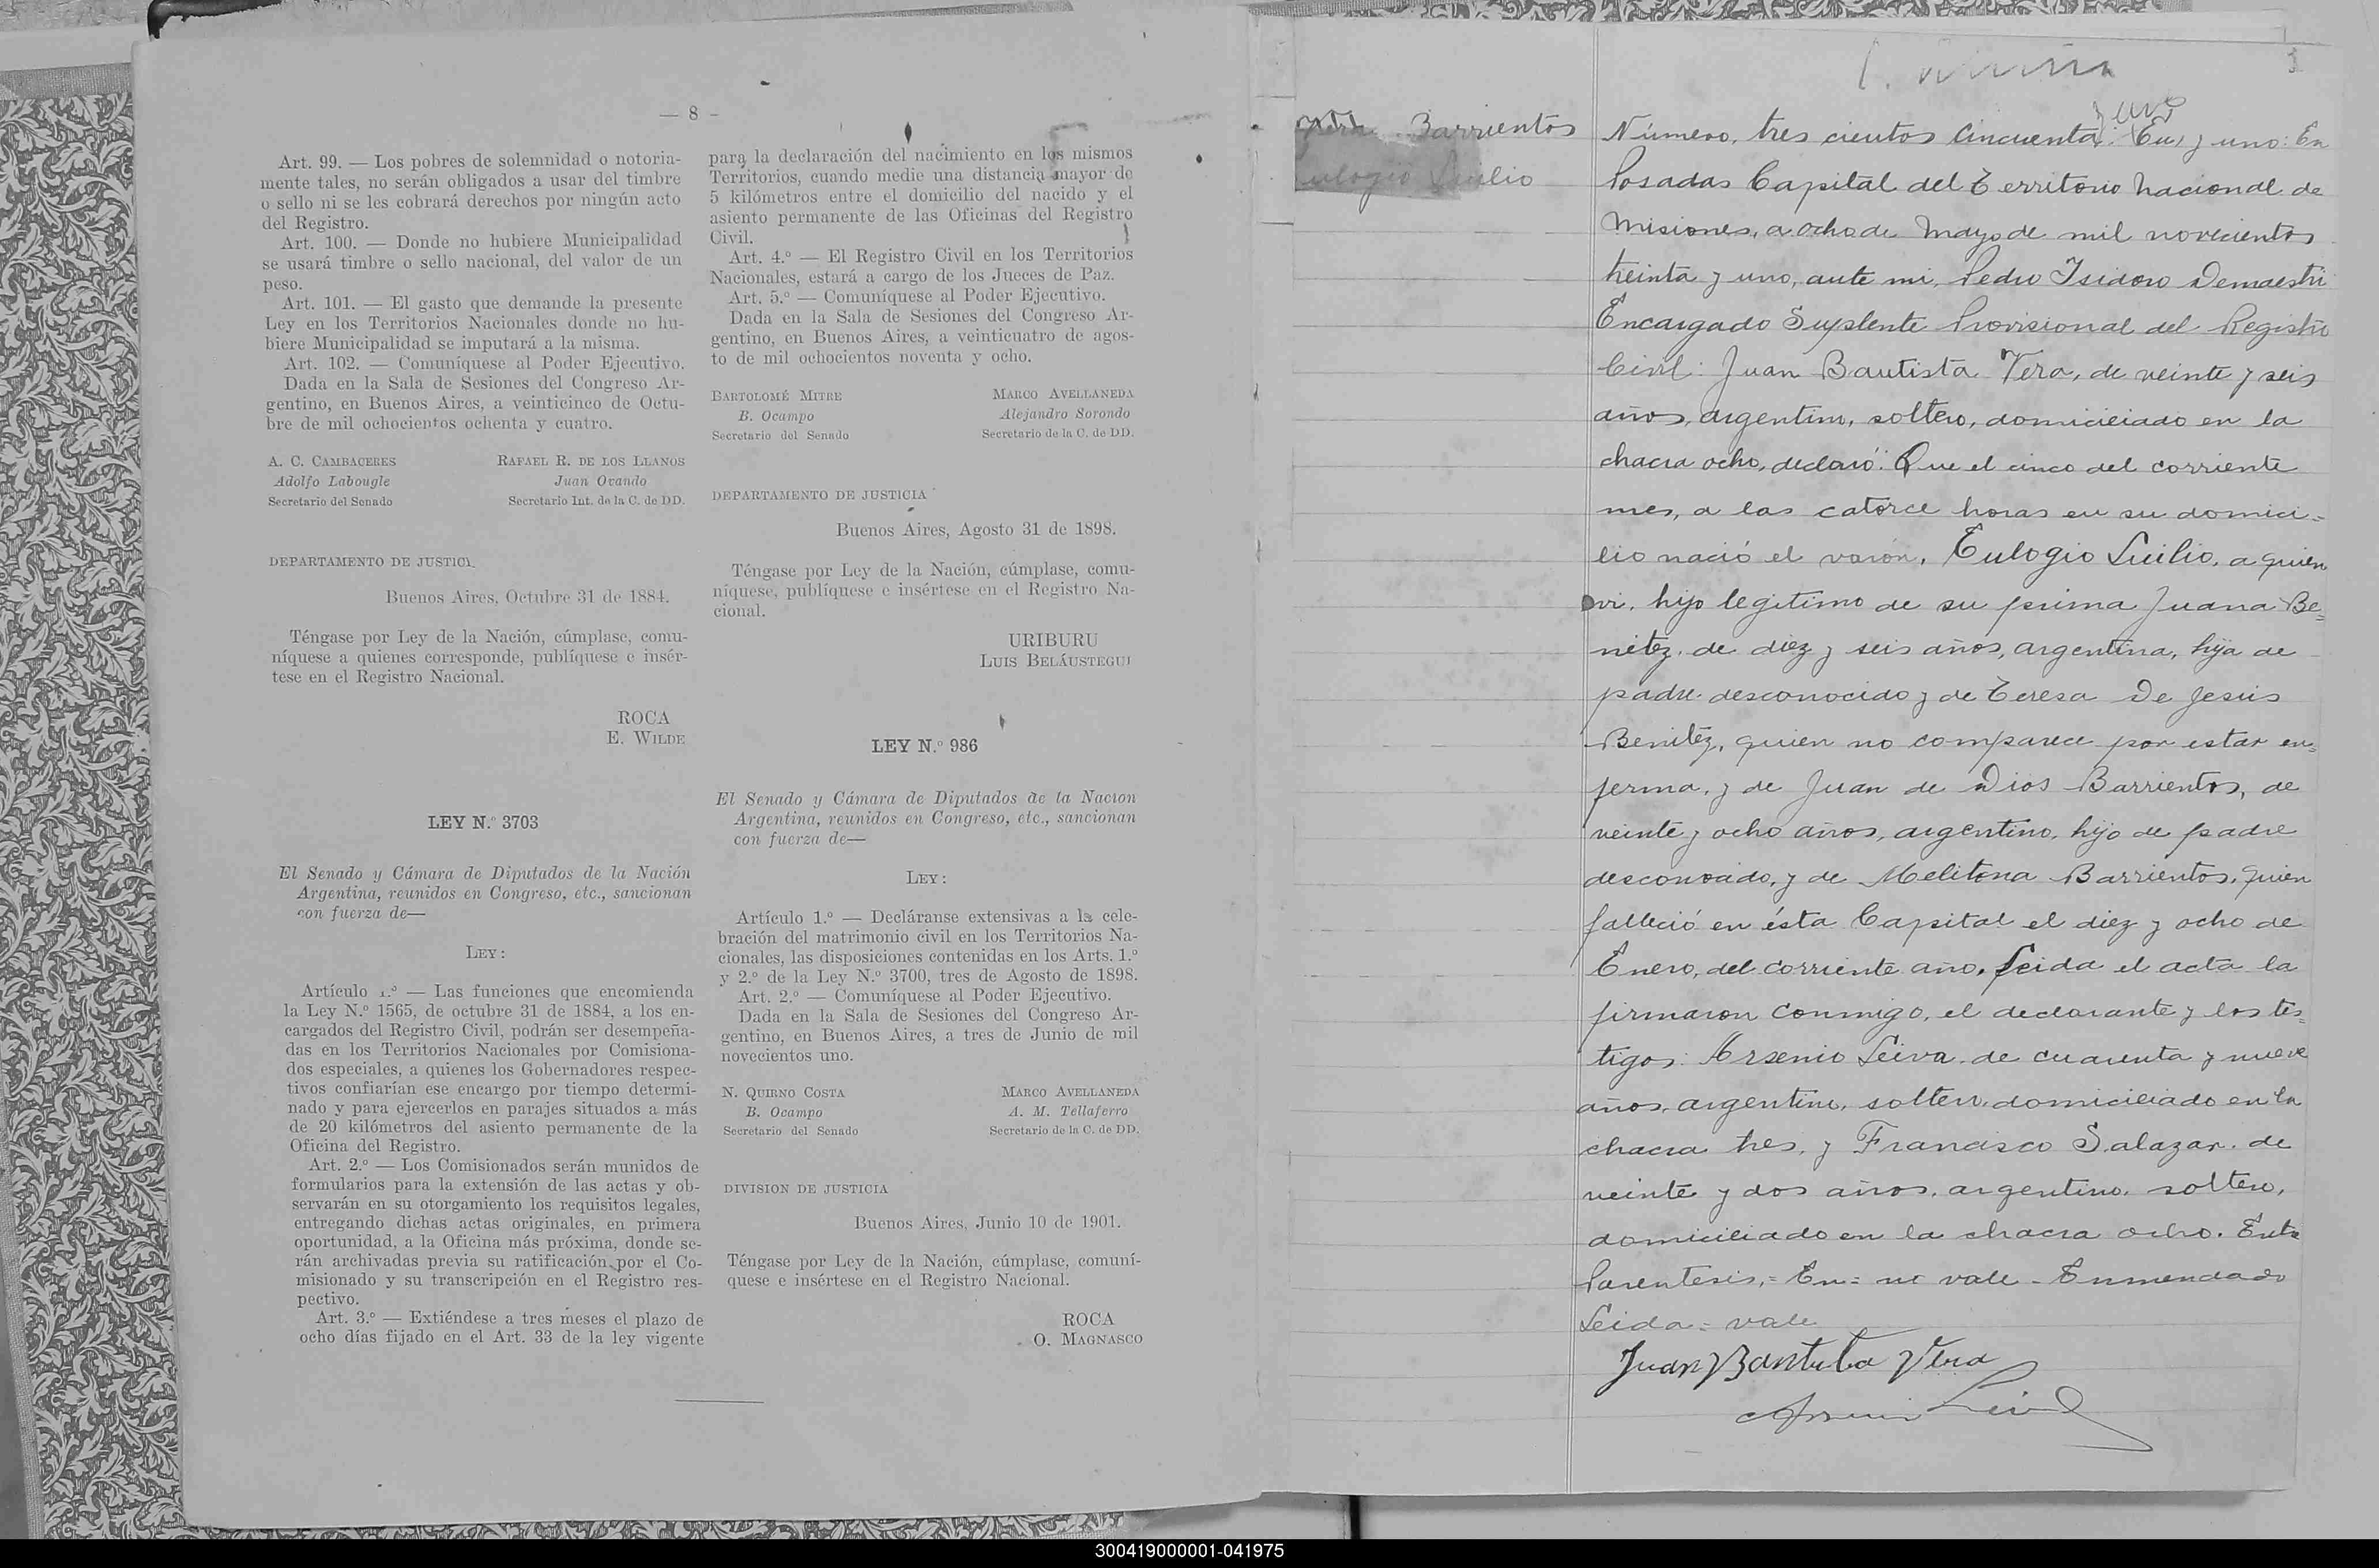 — 8 —
Art. 99. — Los pobres de solemnidad o notoria-
mente tales, no serán obligados a usar del timbre
o sello ni se les cobrará derechos por ningún acto
del Registro.
Art. 100. — Donde no hubiere Municipalidad
se usará timbre o sello nacional, del valor de un
peso.
Art. 101. — El gasto que demande la presente
Ley en los Territorios Nacionales donde no hu-
biere Municipalidad se imputará a la misma.
Art. 102. — Comuníquese al Poder Ejecutivo.
Dada en la Sala de Sesiones del Congreso Ar-
gentino, en Buenos Aires, a veinticinco de Octu-
bre de mil ochocientos ochenta y cuatro.
A. C. CAMBACERES RAFAEL R. DE LOS LLANOS
Adolfo Labougle Juan Ovando
Secretario del Senado Secretario Int. de la C. de DD.
DEPARTAMENTO DE JUSTICI.
Buenos Aires, Octubre 31 de 1884.
Téngase por Ley de la Nación, cúmplase, comu-
níquese a quienes corresponde, publíquese e insér-
tese en el Registro Nacional.
ROCA
E. WILDE
LEY N.º 3703
El Senado y Cámara de Diputados de la Nación
Argentina, reunidos en Congreso, etc., sancionan
con fuerza de—
LEY:
Artículo 1.º — Las funciones que encomienda
la Ley N.º 1565, de octubre 31 de 1884, a los en-
cargados del Registro Civil, podrán ser desempeña-
das en los Territorios Nacionales por Comisiona-
dos especiales, a quienes los Gobernadores respec-
tivos confiarían ese encargo por tiempo determi-
nado y para ejercerlos en parajes situados a más
de 20 kilómetros del asiento permanente de la
Oficina del Registro.
Art. 2.º — Los Comisionados serán munidos de
formularios para la extensión de las actas y ob-
servarán en su otorgamiento los requisitos legales,
entregando dichas actas originales, en primera
oportunidad, a la Oficina más próxima, donde se-
rán archivadas previa su ratificación por el Co-
misionado y su transcripción en el Registro res-
pectivo.
Art. 3.º — Extiéndese a tres meses el plazo de
ocho días fijado en el Art. 33 de la ley vigente
para la declaración del nacimiento en los mismos
Territorios, cuando medie una distancia mayor de
5 kilómetros entre el domicilio del nacido y el
asiento permanente de las Oficinas del Registro
Civil.
Art. 4.º — El Registro Civil en los Territorios
Nacionales, estará a cargo de los Jueces de Paz.
Art. 5.º — Comuníquese al Poder Ejecutivo.
Dada en la Sala de Sesiones del Congreso Ar-
gentino, en Buenos Aires, a veinticuatro de agos-
to de mil ochocientos noventa y ocho.
BARTOLOMÉ MITRE MARCO AVELLANEDA
B. Ocampo Alejandro Sorondo
Secretario del Senado Secretario de la C. de DD.
DEPARTAMENTO DE JUSTICIA
Buenos Aires, Agosto 31 de 1898.
Téngase por Ley de la Nación, cúmplase, comu-
níquese, publíquese e insértese en el Registro Na-
cional.
URIBURU
LUIS BELÁUSTEGUI
LEY N.º 986
El Senado y Cámara de Diputados de la Nacion
Argentina, reunidos en Congreso, etc., sancionan
con fuerza de—
LEY:
Artículo 1.º — Decláranse extensivas a la cele-
bración del matrimonio civil en los Territorios Na-
cionales, las disposiciones contenidas en los Arts. 1.º
y 2.º de la Ley N.º 3700, tres de Agosto de 1898.
Art. 2.º — Comuníquese al Poder Ejecutivo.
Dada en la Sala de Sesiones del Congreso Ar-
gentino, en Buenos Aires, a tres de Junio de mil
novecientos uno.
N. QUIRNO COSTA MARCO AVELLANEDA
B. Ocampo A. M. Tellaferro
Secretario del Senado Secretario de la C. de DD.
DIVISION DE JUSTICIA
Buenos Aires, Junio 10 de 1901.
Téngase por Ley de la Nación, cúmplase, comuní-
quese e insértese en el Registro Nacional.
ROCA
O. MAGNASCO
Barrientos
Eulogio Lucilio
Número, tres cientos cincuenta (En) y uno: En
Posadas Capital del Territorio Nacional de
Misiones, a ocho de Mayo de mil novecientos
treinta y uno, ante mi, Pedro Isidoro Demaestri
Encargado Suplente Provisional del Registro
Civil: Juan Bautista Vera, de veinte y seis
años, argentino, soltero, domiciliado en la
chacra ocho, declaró: Que el cinco del corriente
mes, a las catorce horas en su domici=
lio nació el varón, Eulogio Lucilio, a quien
vi, hijo legitimo de su prima Juana Be=
nitez, de diez y seis años, argentina, hija de
padre desconocido y de Teresa De Jesús
Benitez, quien no comparece por estar en=
ferma, y de Juan de Dios Barrientos, de
veinte y ocho años, argentino, hijo de padre
desconocido, y de Melitona Barrientos, quien
falleció en ésta Capital el diez y ocho de
Enero, del corriente año. Leida el acta la
firmaron conmigo, el declarante y los tes=
tigos: Arsenio Leiva, de cuarenta y nueve
años, argentino, soltero, domiciliado en la
chacra tres, y Francisco Salazar, de
veinte y dos años, argentino, soltero,
domiciliado en la chacra ocho. Entre
Parentesis, = En = no vale - Enmendado
Leida = vale
Juan Bautista Vera
Arsenio Leiva
300419000001-041975